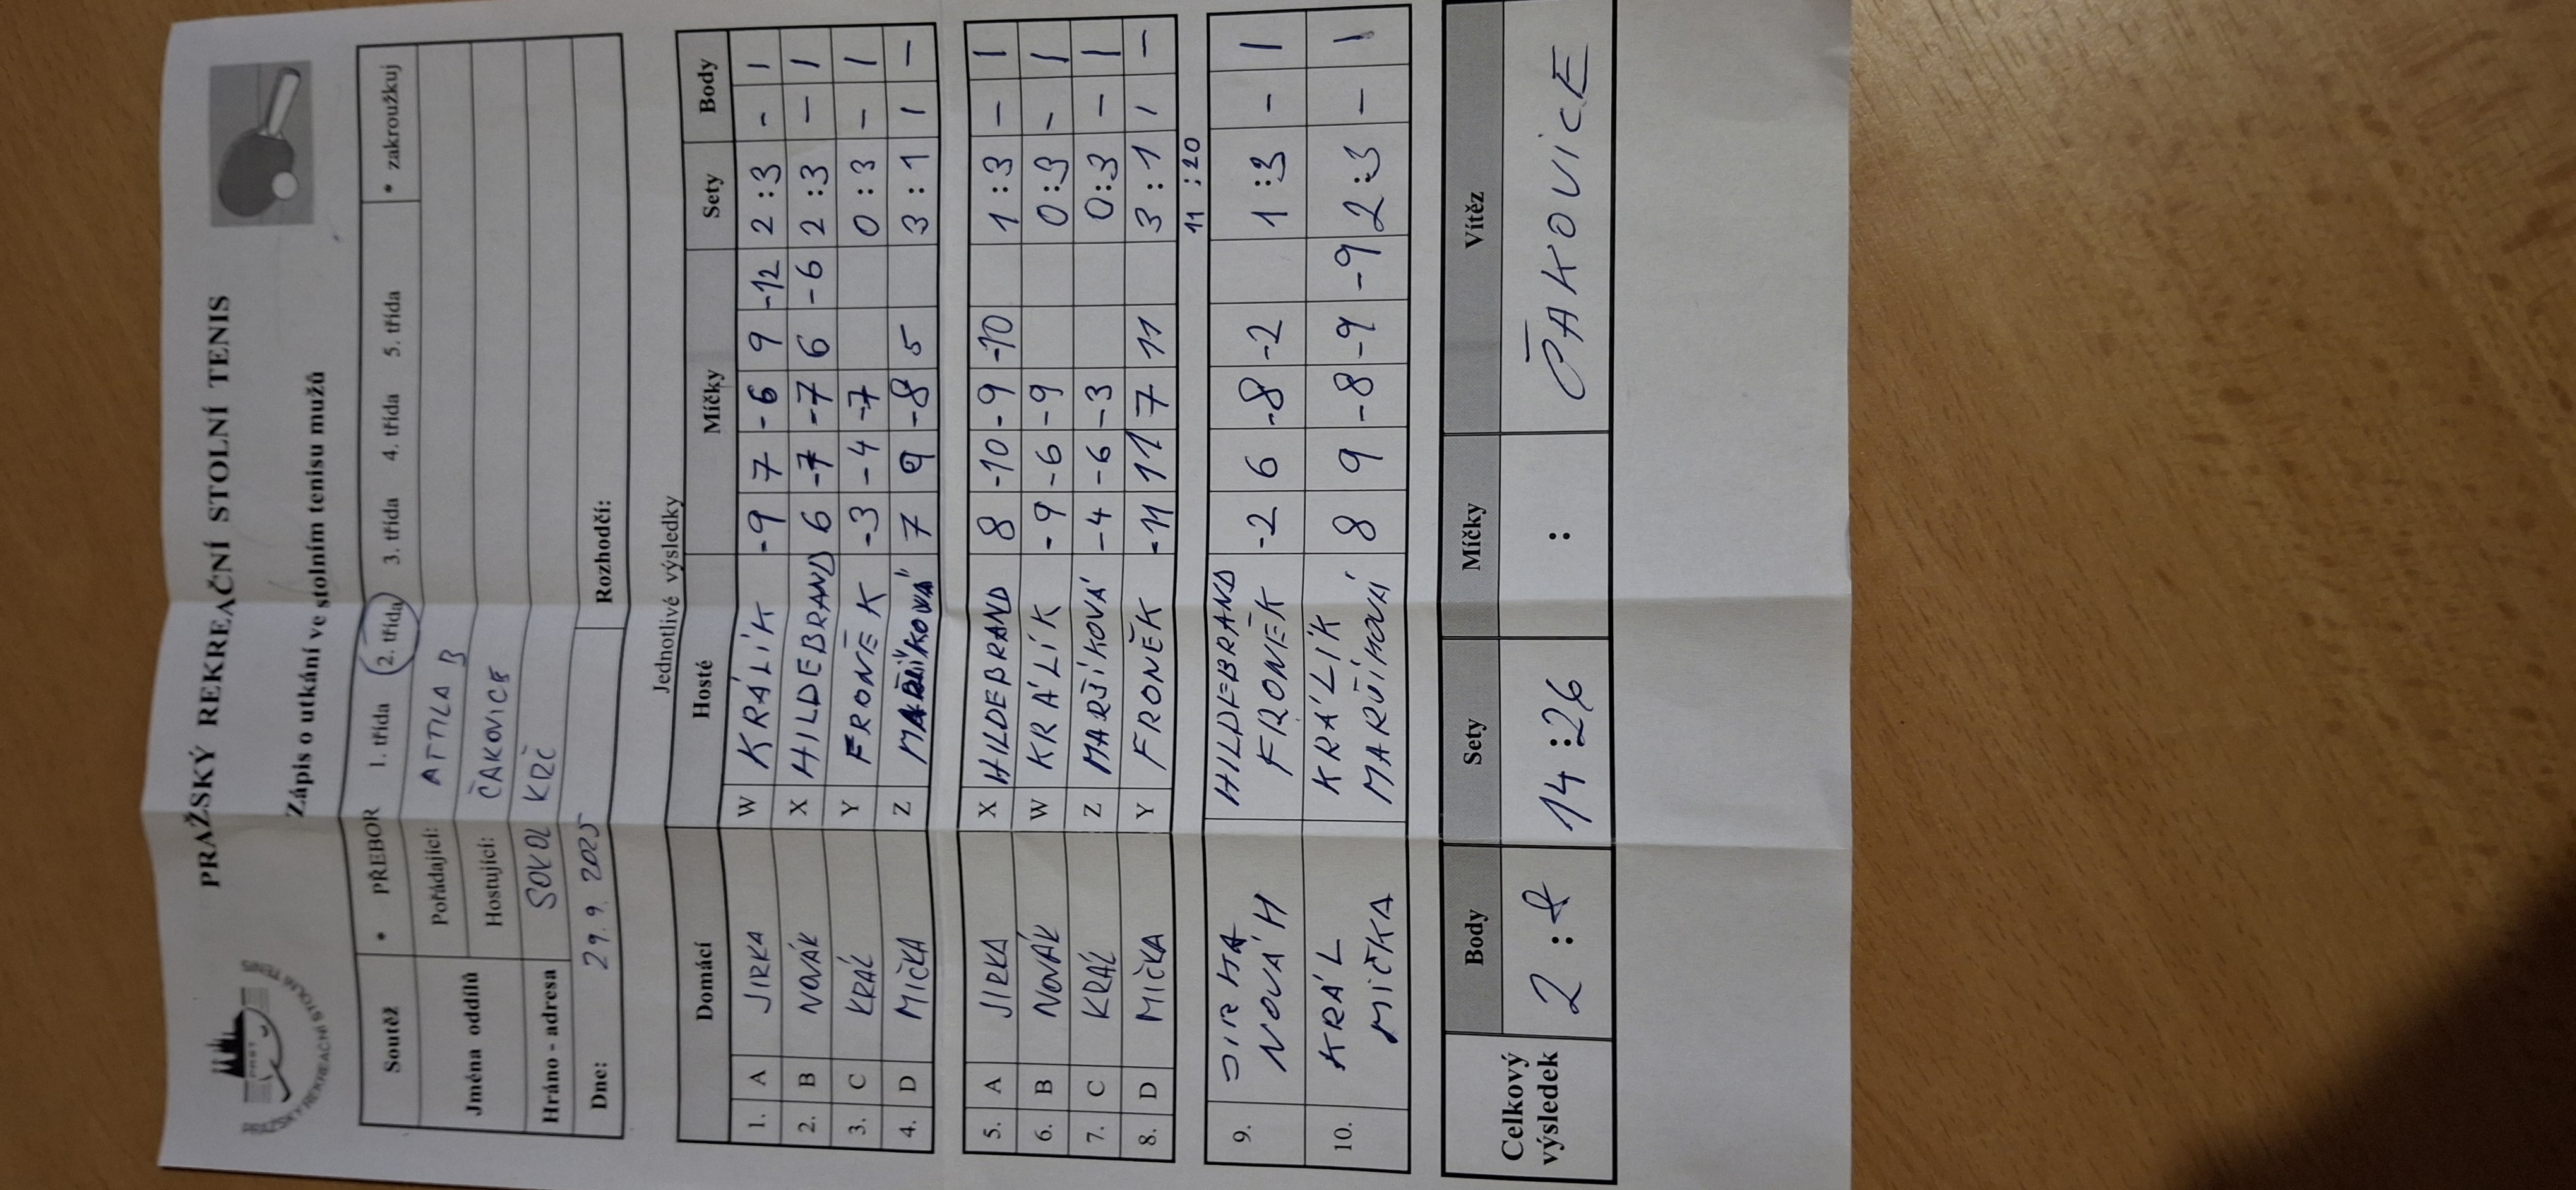 PRAŽSKÝ REKREAČNÍ STOLNÍ TENIS
Zápis o utkání ve stolním tenisu mužů
Soutěž * PŘEBOR 1. třída 2. třída 3. třída 4. třída 5. třída * zakroužkuj
Jména oddílů Pořádající: ATTILA B
Hostující: ČAKOVICE
Hráno - adresa SOKOL KRČ
Dne: 29. 9. 2025 Rozhodčí:
Jednotlivé výsledky
Domácí Hosté Míčky Sety Body
1. A JIRKA W KRÁLÍK -9 7 -6 9 -12 2:3 - 1
2. B NOVÁK X HILDEBRAND 6 -7 -7 6 -6 2:3 - 1
3. C KRÁL Y FRONĚK -3 -4 -7 0:3 - 1
4. D MIČKA Z MAŘÍKOVÁ 7 9 -8 5 3:1 1 -
5. A JIRKA X HILDEBRAND 8 -10 -9 -10 1:3 - 1
6. B NOVÁK W KRÁLÍK -9 -6 -9 0:3 - 1
7. C KRÁL Z MARŠÍKOVÁ -4 -6 -3 0:3 - 1
8. D MIČKA Y FRONĚK -11 11 7 11 3:1 1 -
11:20
9. JIRKA HILDEBRAND -2 6 -8 -2 1:3 - 1
NOVÁK FRONĚK
10. KRÁL KRÁLÍK 8 9 -8 -9 -9 2:3 - 1
MIČKA
Celkový výsledek Body Sety Míčky Vítěz
2:8 14:26 : ČAKOVICE